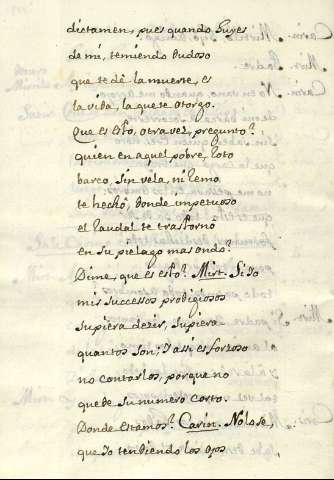 dictamen, pues quando huyes
de mi, temiendo dudoso
que te dè la muerte, es
la vida, la que te otorgo.
Que es esto, otra vez, pregunto?
quien en aquel pobre, roto
barco, sin vela, ni remo
te hechó, donde impetuoso
el raudal te trastornó
en su pielago mas ondo?
Dime, que es esto? Mirt. Si Io
mis successos prodigiosos
supiera dezir, supiera
quantos son; I assi es forzoso
no contarlos, porque no
quede su numero corto.
Donde estamos? Carin. No lo se,
que Io tendiendo los ojos